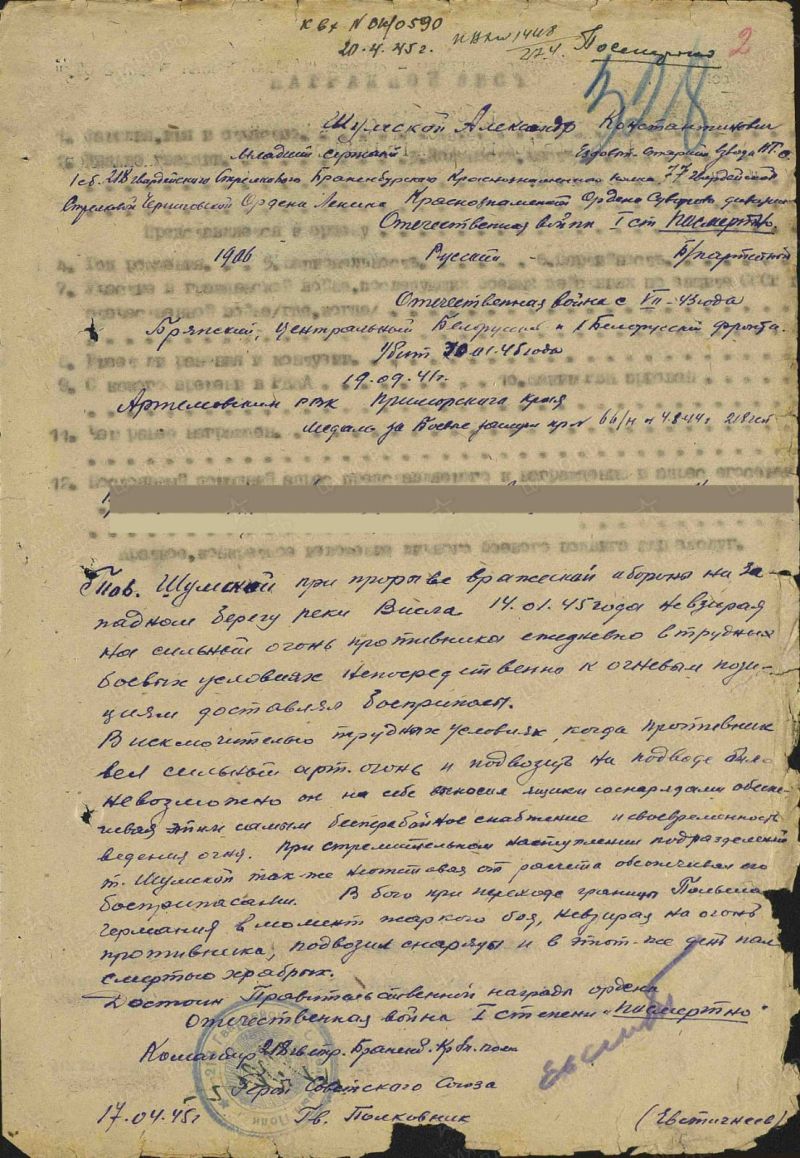 К вх N 04/0590
20.4.45г.
Посмертно
2
328
НАГРАДНОЙ ЛИСТ
1. Фамилия, имя и отчество Шумской Александр Константинович
Младший сержант Ездовой старший взвода ПТО
1 сб. 218 гвардейского Стрелкового Бранденбургского Краснознаменного полка 77 Гвардейской
Стрелковой Черниговской Ордена Ленина Краснознаменной Ордена Суворова дивизии
Представляется к ордену Отечественная война I ст Посмертно.
4. Год рождения 1906 5. Национальность Русский Б/партийный
7. Участие в гражданской войне,
Отечественная война с VII-43 года
Брянский, Центральный Белорусский и 1 Белорусский фронта.
8. Имеет ли ранения и контузии. Убит 30.01.45 года
9. С какого времени в РККА 19.09.41г.
Артемовским РВК Приморского края
11. Чем ранее награжден. Медаль за Боевые заслуги пр. N 66/н 4.8.44г 218 гсп
12.
Краткое, конкретное изложение личного боевого подвига или заслуг.
Тов. Шумской при прорыве вражеской обороны на за-
падном берегу реки Висла 14.01.45 года невзирая
на сильный огонь противника ежедневно в трудных
боевых условиях непосредственно к огневым пози-
циям доставлял боеприпасы.
В исключительно трудных условиях, когда противник
вел сильный арт. огонь и подвозить на подводе было
невозможно он на себе выносил ящики со снарядами обеспе-
чивая этим самым бесперебойное снабжение и своевременность
ведения огня. При стремительном наступлении подразделений
т. Шумской так-же не отставая от расчета обеспечивал его
боеприпасами. В бою при переходе границы Польша
Германия в момент жаркого боя, невзирая на огонь
противника, подвозил снаряды и в этот-же день пал
смертью храбрых.
Достоин Правительственной награды ордена
Отечественная война I степени "Посмертно"
Командир 218 гв. стр. Бранденб. Кр. Зн. полка
Герой Советского Союза
17.04.45г Гв. Полковник (Евстигнеев)